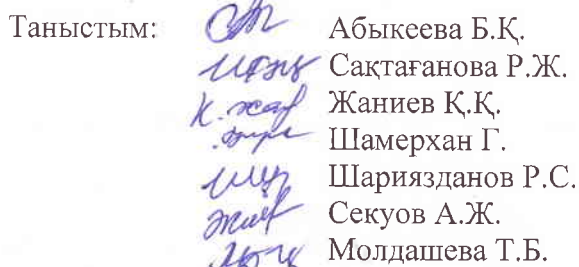 Таныстым: Абыкеева Б.Қ.
Сақтағанова Р.Ж.
Жаниев Қ.Қ.
Шамерхан Г.
Шариязданов Р.С.
Секуов А.Ж.
Молдашева Т.Б.